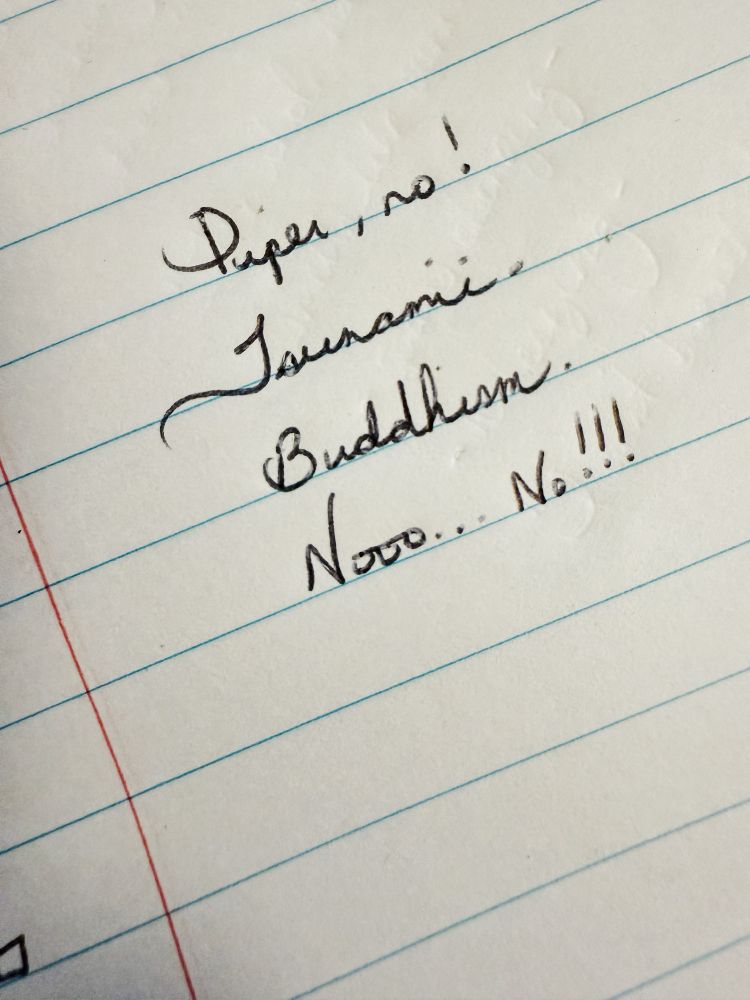 Piper, no!
Tsunami.
Buddhism.
Nooo... No!!!